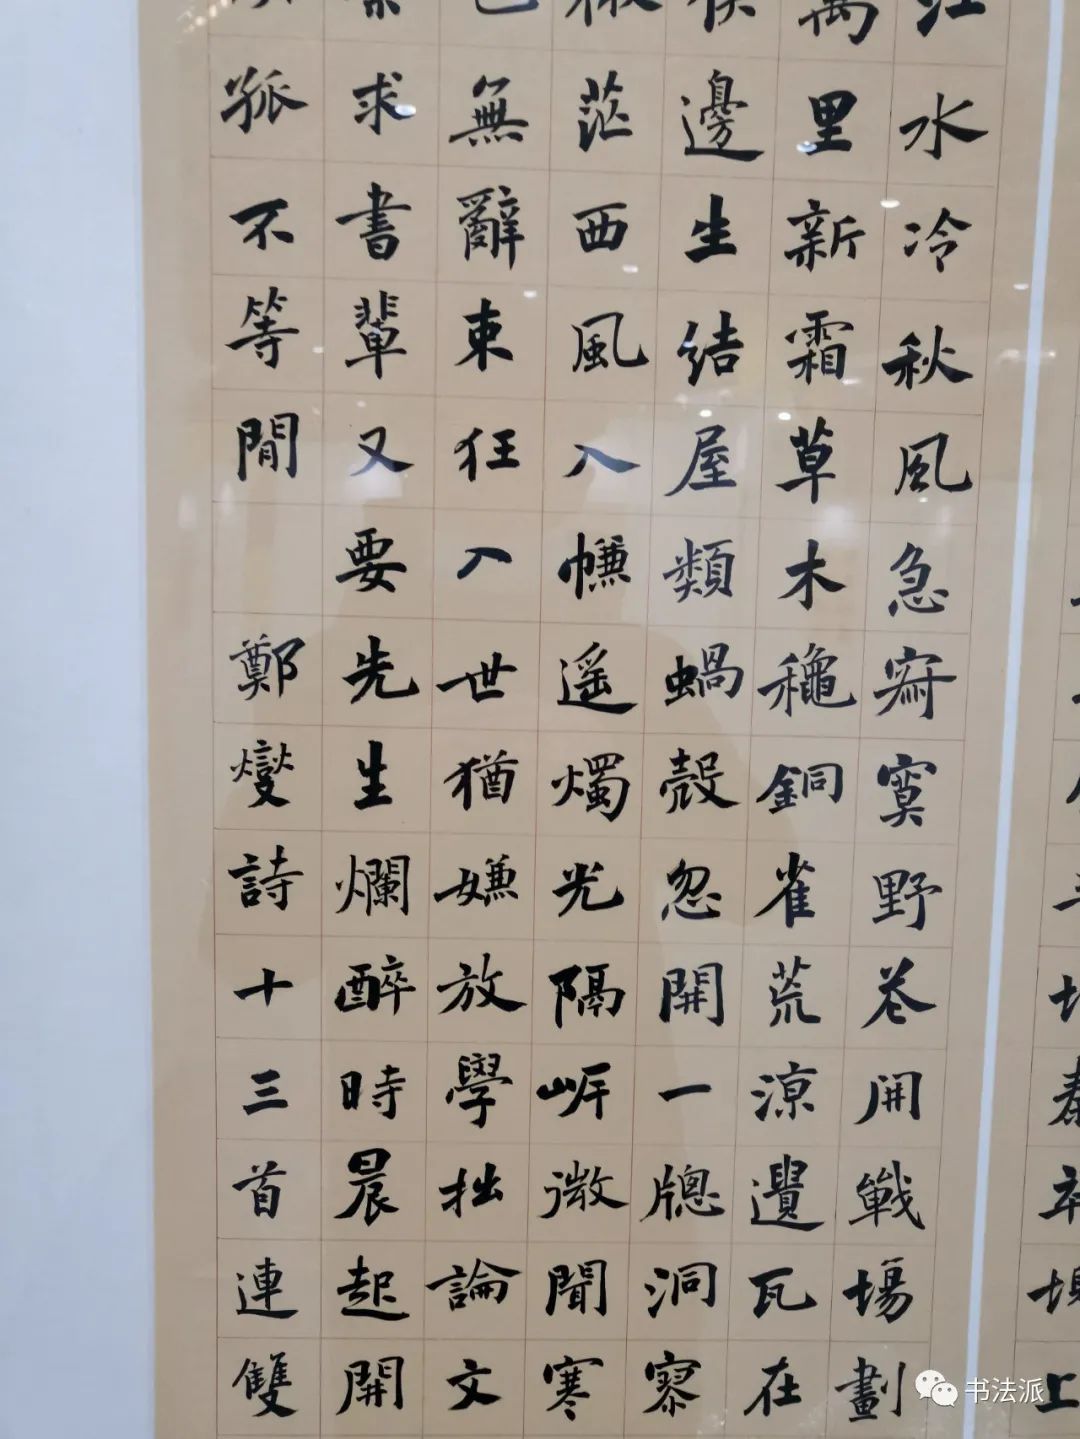 江水冷秋風急寂寞野芲開戰場劃
萬里新霜草木穐銅雀荒涼遺瓦在
邊生結屋類蝸殼忽開一牕洞寥
茫西風入㡘遥燭光隔岸微聞寒
無辭束狂入世猶嫌放學拙論文
求書輩又要先生爛醉時晨起開
孤不等閒 鄭燮詩十三首連雙
书法派